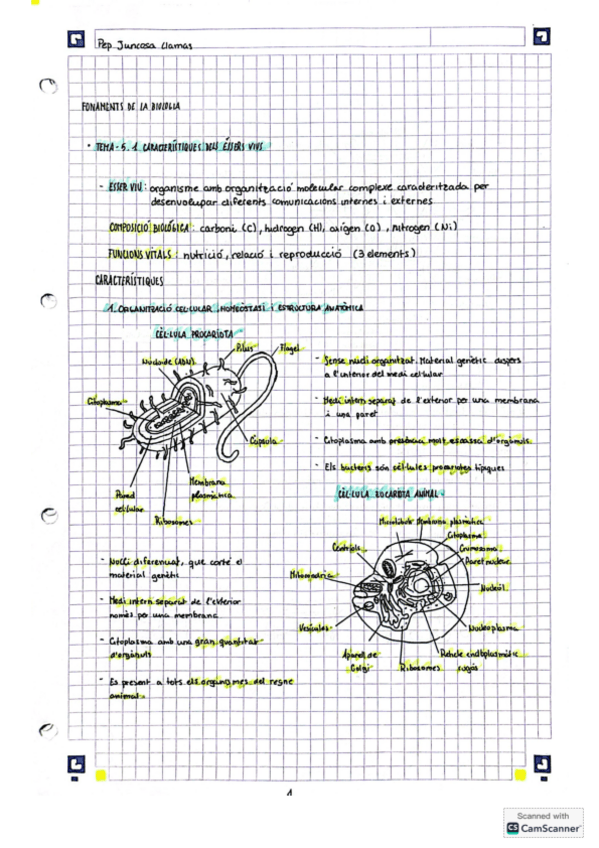 Pep Juncosa Llamas
FONAMENTS DE LA BIOLOGIA
- TEMA-5.1 CARACTERÍSTIQUES DELS ÉSSERS VIUS
- ESSER VIU: organisme amb organització molecular complexe caracteritzada per
desenvolupar diferents comunicacions internes i externes
COMPOSICIÓ BIOLÒGICA: carboni (C), hidrogen (H), oxigen (O), nitrogen (Ni)
FUNCIONS VITALS: nutrició, relació i reproducció (3 elements)
CARACTERÍSTIQUES
1. ORGANITZACIÓ CEL·LULAR, HOMEÒSTASI I ESTRUCTURA ANATÒMICA
CÈL·LULA PROCARIOTA
Pilus
Flagel
Nucleoide (ADN)
Citoplasma
Càpsula
Membrana
plasmàtica
Pared
cel·lular
Ribosomes
- Sense nucli organitzat. Material genètic dispers
a l'interior del medi cel·lular
- Medi intern separat de l'exterior per una membrana
i una paret
- Citoplasma amb presència molt escassa d'orgànuls.
- Els bacteris són cèl·lules procariotes típiques
CÈL·LULA EUCARIOTA ANIMAL
Microtúbuls
Membrana plasmàtica
Citoplasma
Centríols
Cromosoma
Paret nuclear
Mitocondria
Nuclèol
Vesícules
Nucleoplasma
Aparell de
Golgi
Ribosomes
Reticle endoplasmàtic
rugós
- Nucli diferenciat, que conté el
material genètic
- Medi intern separat de l'exterior
només per una membrana
- Citoplasma amb una gran quantitat
d'orgànuls
- Es present a tots els organismes del regne
animal.
1
Scanned with
CS CamScanner